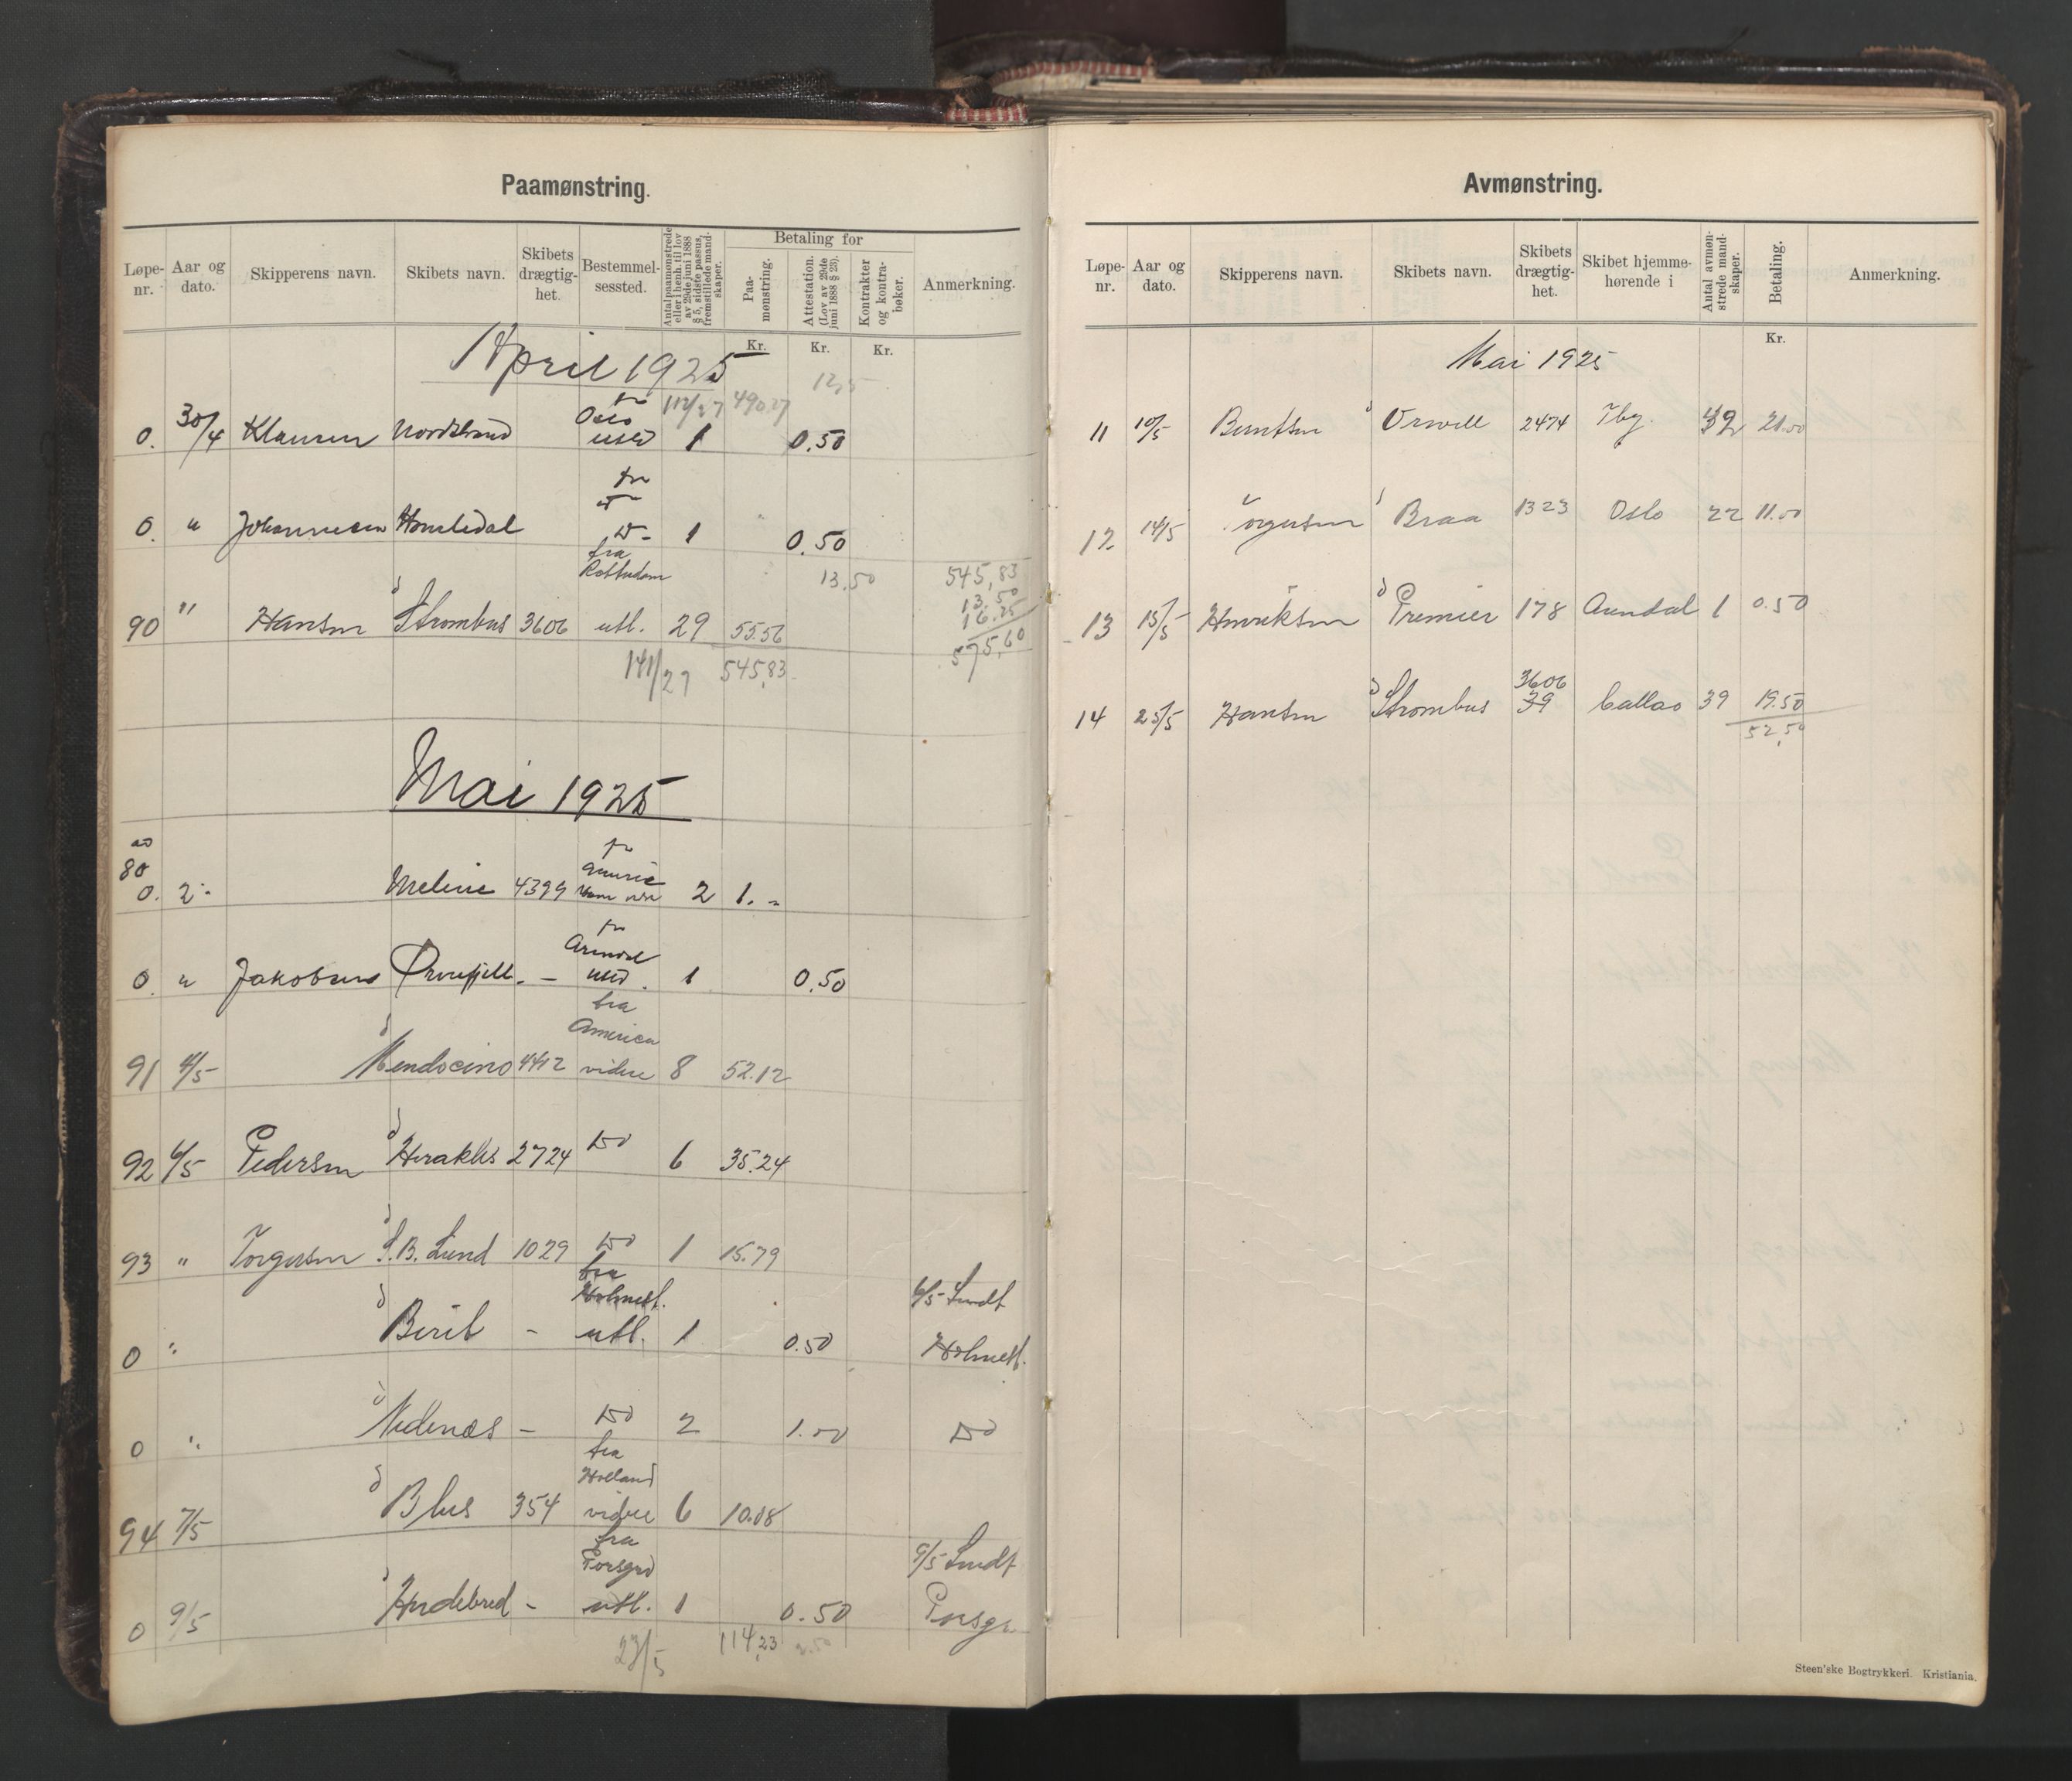 Paamønstring.
Løpe-nr. Aar og dato. Skipperens navn. Skibets navn. Skibets drægtig-het. Bestemmel-sessted. Antal paamønstrede eller i henh. til lov av 29de juni 1888 § 5, sidste passus, fremstillede mand-skaper. Betaling for Paa-mønstring. Attestation. (Lov av 29de juni 1888 § 23). Kontrakter og kontra-bøker. Anmerkning.
Kr. Kr. Kr.
April 1925
112/27 490.27
fra Oslo
0. 30/4 Klausen Nordstrand utld 1 0.50
fra
0. " Johannesen Homledal do - 1 0.50
fra
Rotterdam 13.50 545,83
13.50
16.25
90 " Hansen d Strombus 3606 utl. 29 55.56
575,60
141/27 545,83
Mai 1925
ad
80
fra
0. 2. Meline 4399 2 1. -
fra
Arendal
0. " Jakobsen - utld. 1 0.50
fra
America
91 4/5 d Mendocino 4412 videre 8 52.12
92 6/5 Pedersen d Herakles 2724 do 6 35.24
93 " Torgersen d S.B. Lund 1029 do 1 15.79
fra
Holmest. 6/5 Sendt
0 " d Birit - utl. 1 0.50 Holmest.
0 " d Nedenæs - do 2 1.00 do
fra
Holland
94 7/5 d Blus 354 videre 6 10.08
fra
Porsgrd 9/5 Sendt
0 9/5 d - utl. 1 0.50 Porsgr.
23/5 114,23 2.50
Avmønstring.
Løpe-nr. Aar og dato. Skipperens navn. Skibets navn. Skibets drægtig-het. Skibet hjemme-hørende i Antal avmøn-strede mand-skaper. Betaling. Anmerkning.
Kr.
Mai 1925
11 10/5 Berntsen d Orwell 2474 Tbg. 42 21.00
12 14/5 Torgersen d Braa 1323 Oslo 22 11.00
13 15/5 Henriksen d Premier 178 Arendal 1 0.50
3606
14 25/5 Hansen d Strombus 39 Callao 39 19.50
52,50
Steen'ske Bogtrykkeri. Kristiania.